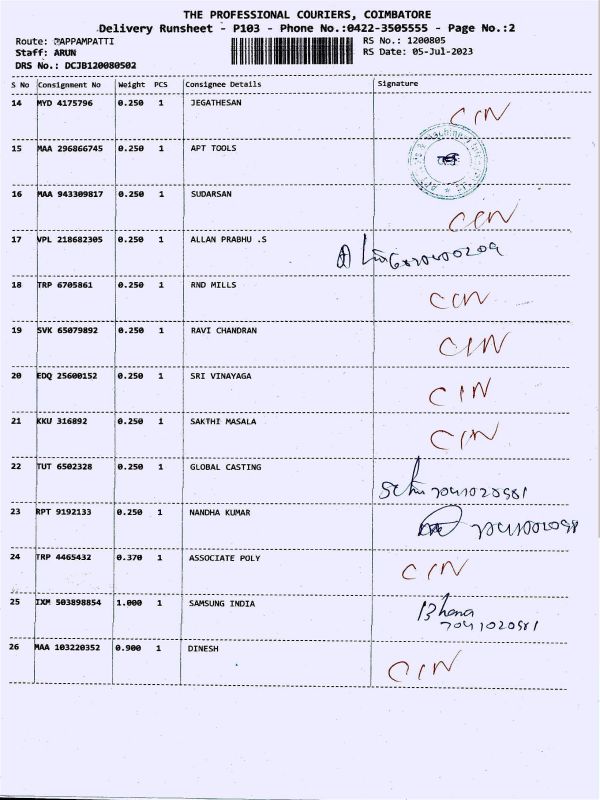 THE PROFESSIONAL COURIERS, COIMBATORE
Delivery Runsheet - P103 - Phone No.:0422-3505555 - Page No.:2
Route: PAPPAMPATTI RS No.: 1200805
Staff: ARUN RS Date: 05-Jul-2023
DRS No.: DCJB120080502
S No Consignment No Weight PCS Consignee Details Signature
14 MYD 4175796 0.250 1 JEGATHESAN CIN
15 MAA 296866745 0.250 1 APT TOOLS
16 MAA 943309817 0.250 1 SUDARSAN CIN
17 VPL 218682305 0.250 1 ALLAN PRABHU .S
18 TRP 6705861 0.250 1 RND MILLS CIN
19 SVK 65079892 0.250 1 RAVI CHANDRAN CIN
20 EDQ 25600152 0.250 1 SRI VINAYAGA CIN
21 KKU 316892 0.250 1 SAKTHI MASALA CIN
22 TUT 6502328 0.250 1 GLOBAL CASTING 7041020581
23 RPT 9192133 0.250 1 NANDHA KUMAR
24 TRP 4465432 0.370 1 ASSOCIATE POLY CIN
25 IXM 503898854 1.000 1 SAMSUNG INDIA Bhana
7041020581
26 MAA 103220352 0.900 1 DINESH CIN